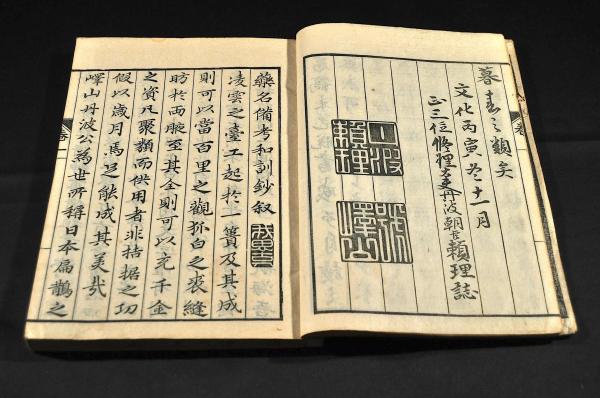 暮春之類矣
文化丙寅冬十一月
正三位修理大夫丹波朝臣頼理誌
丹波頼理
號峄山
藥名備考和訓鈔叙
凌雲之臺工起於一簣及其成
則可以當百里之觀狐白之裘縫
昉於兩腋至其全則可以充千金
之資凡聚類而供用者非拮据之功
假以歳月焉足能成其美哉
嶧山丹波公為世所稱日本扁鵲之